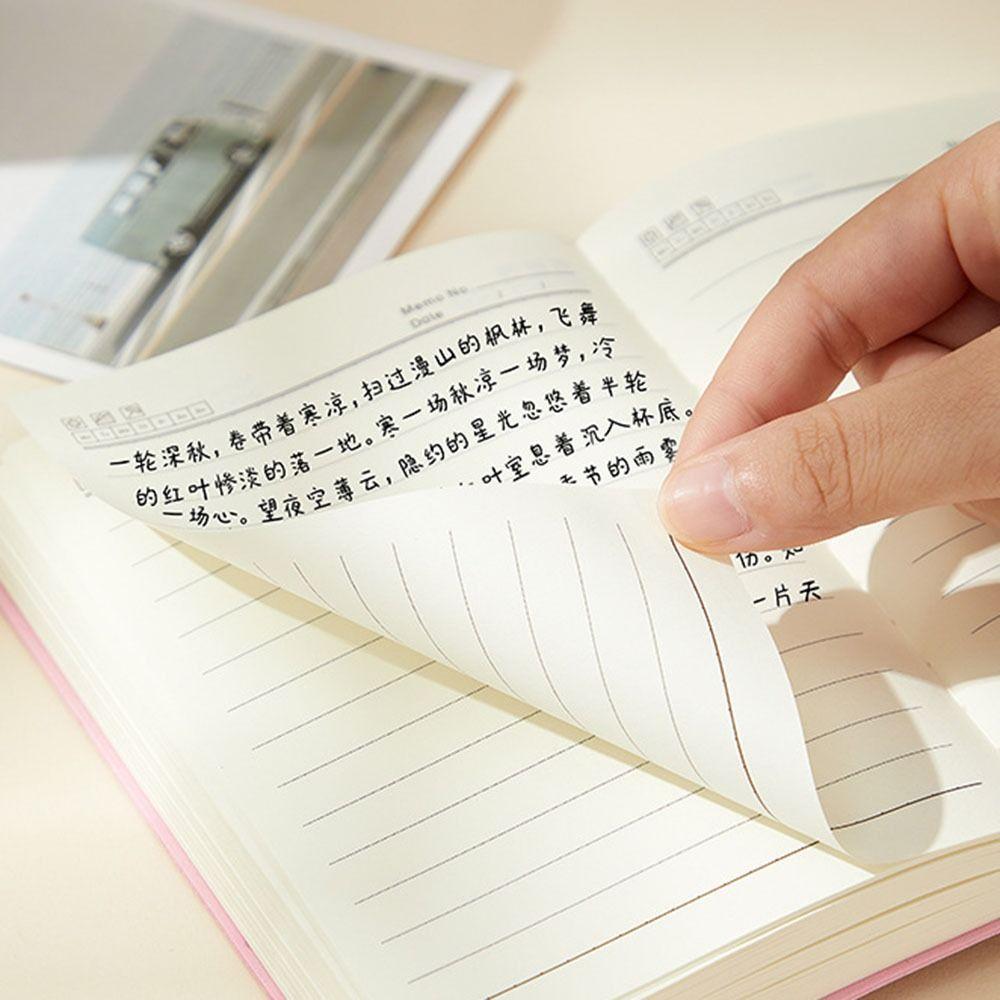 Memo No
Date / /
一轮深秋，卷带着寒凉，扫过漫山的枫林，飞舞
的红叶惨淡的落一地。寒一场秋凉一场梦，冷
一场心。望夜空薄云，隐约的星光忽悠着半轮
叶室息着沉入杯底。
节的雨雾
伤。
一片天